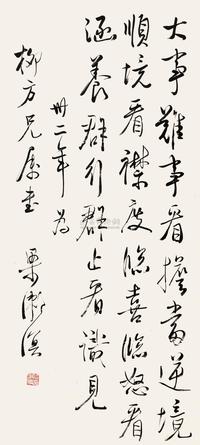 大事難事看擔當逆境
順境看襟度臨喜臨怒看
涵養群行群止看識見
卅二年 為
柳方兄屬書
梁漱溟